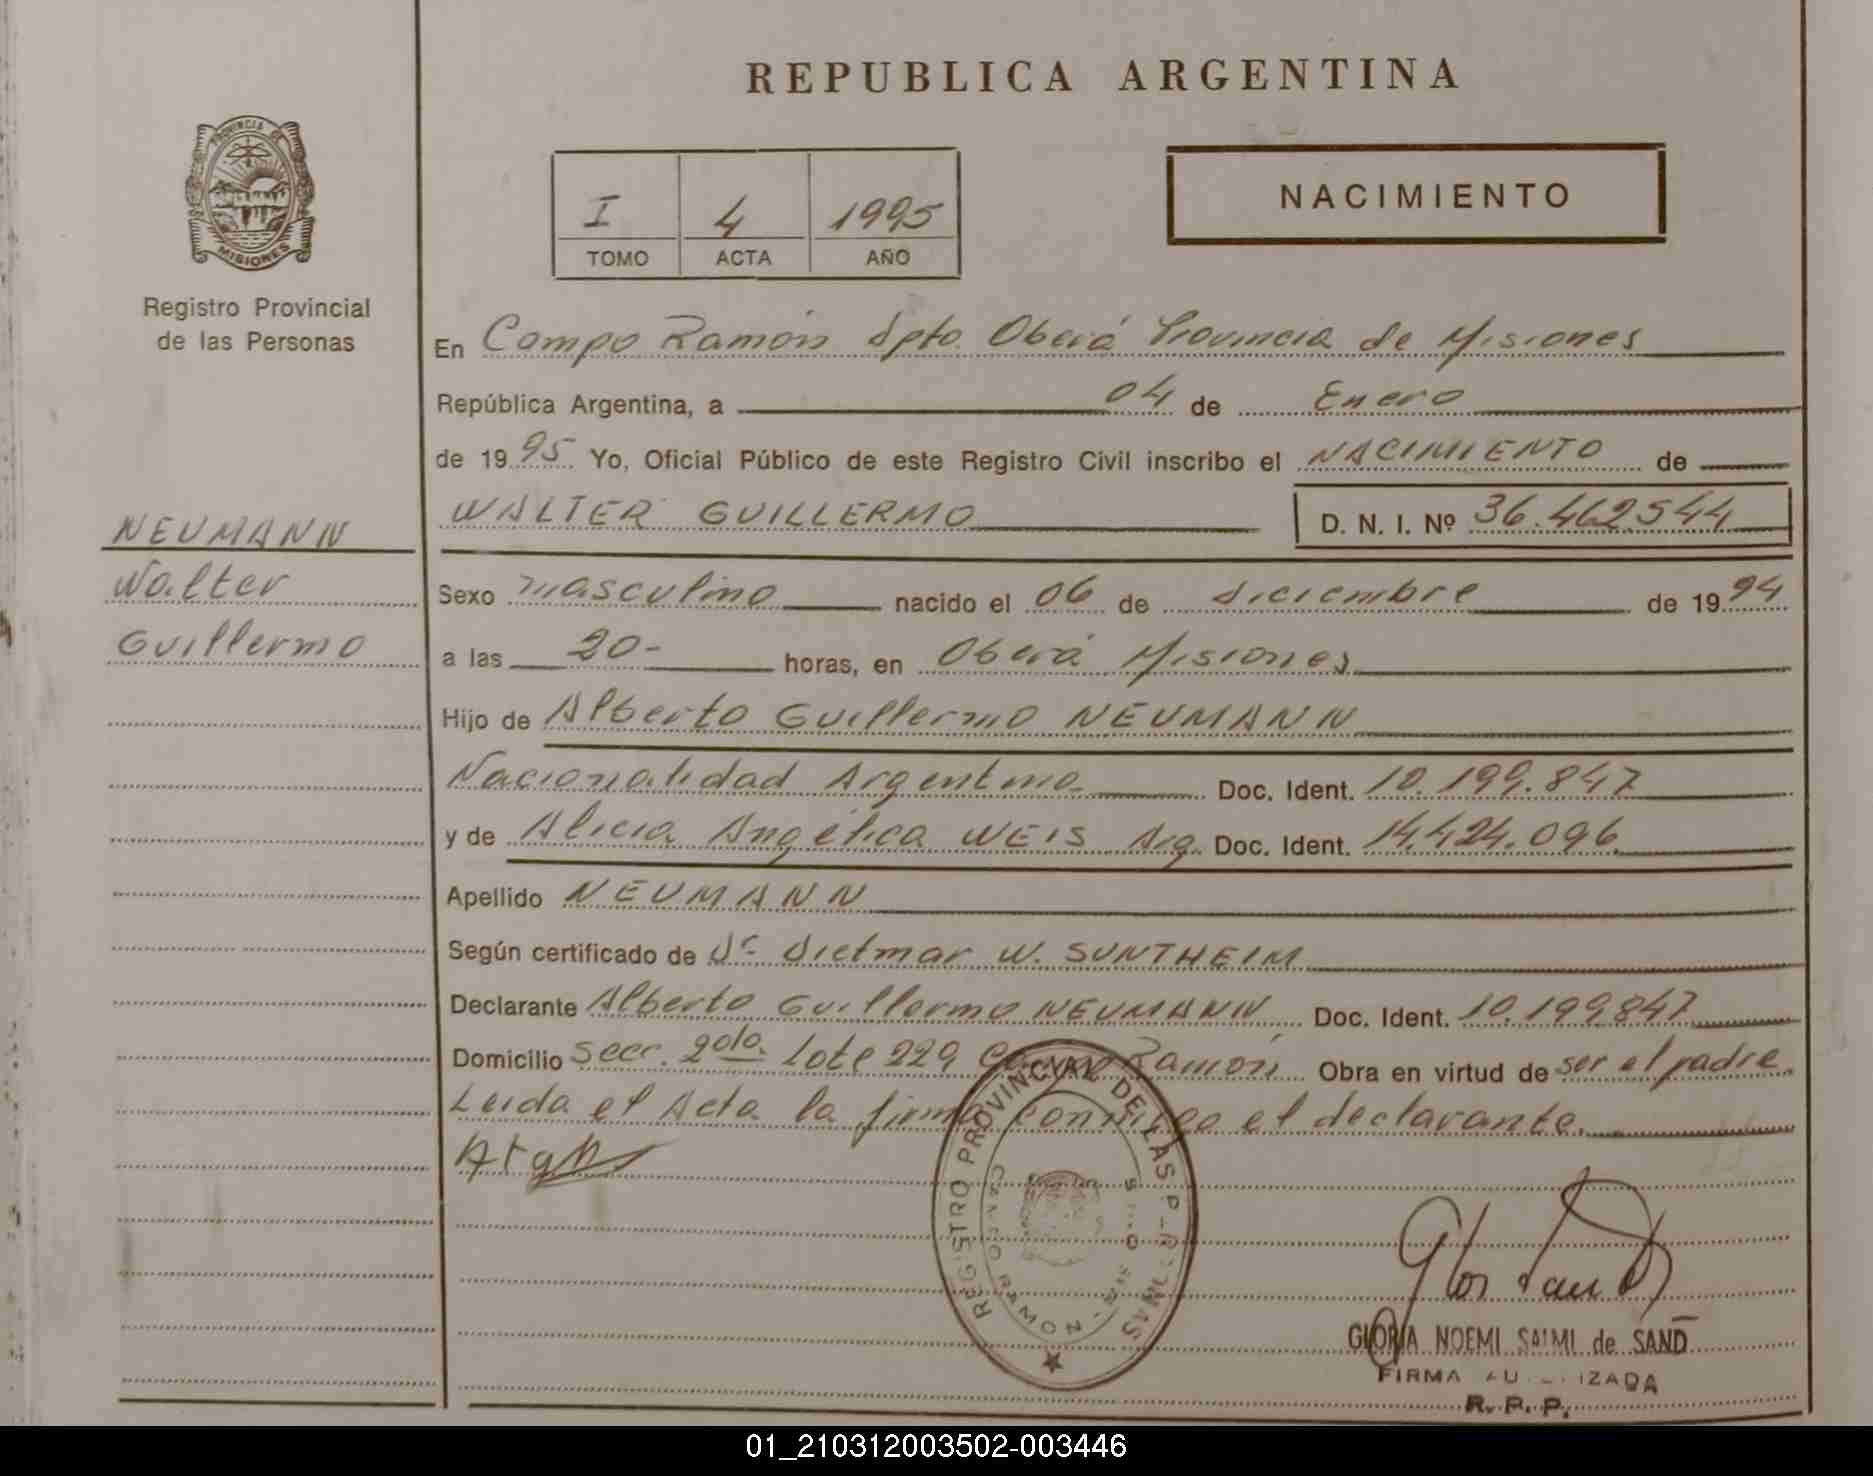 REPUBLICA ARGENTINA
PROVINCIA DE
MISIONES
Registro Provincial
de las Personas
I 4 1995
TOMO ACTA AÑO
NACIMIENTO
En Campo Ramón Dpto. Oberá Provincia de Misiones
República Argentina, a 04 de Enero
de 1995 Yo, Oficial Público de este Registro Civil inscribo el NACIMIENTO de
WALTER GUILLERMO D. N. I. Nº 36.462544
NEUMANN
Walter
Guillermo
Sexo masculino nacido el 06 de diciembre de 1994
a las 20- horas, en Oberá Misiones
Hijo de Alberto Guillermo NEUMANN
Nacionalidad Argentina Doc. Ident. 10.199.847
y de Alicia Angélica WEIS Arg. Doc. Ident. 14.424.096
Apellido NEUMANN
Según certificado de Dr Dietmar W. SUNTHEIM
Declarante Alberto Guillermo NEUMANN Doc. Ident. 10.199847
Domicilio Secc. 2da. Lote 229 Campo Ramón Obra en virtud de ser el padre.
Leida el Acta la firma conmigo el declarante.
REGISTRO PROVINCIAL DE LAS PERSONAS
CAMPO RAMON
GLORIA NOEMI SAIMI de SAND
FIRMA AUTORIZADA
R. P. P.
01_210312003502-003446